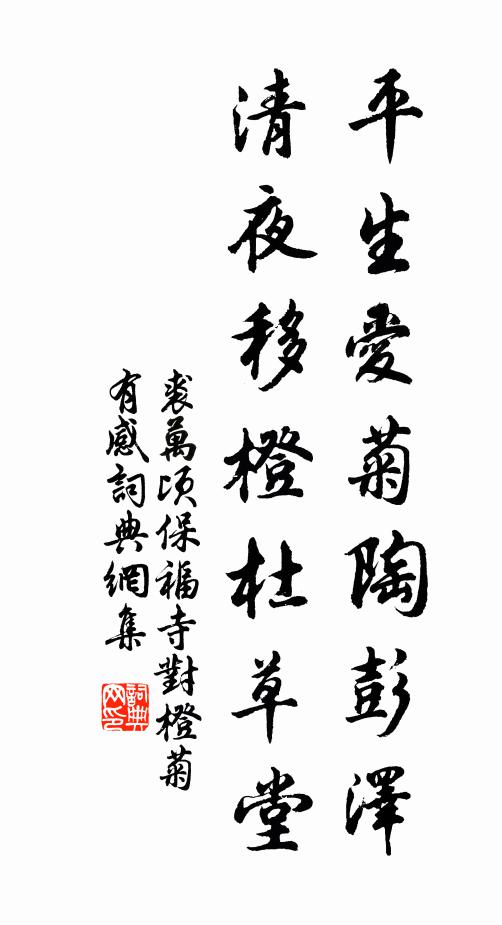 平生愛菊陶彭澤
清夜移橙杜草堂
裘萬頃保福寺對橙菊
有感詞典網集
詞典
网印